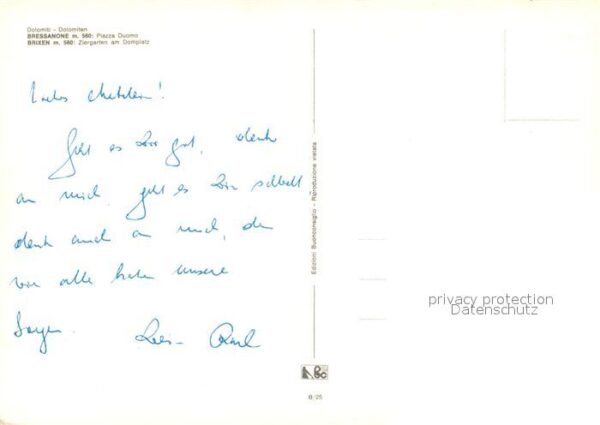 Dolomiti - Dolomiten
BRESSANONE m. 560: Piazza Duomo
BRIXEN m. 560: Ziergarten am Domplatz
Liebes
Geht es Dir gut, denk
an mich, geht es Dir schlecht
denk auch an mich, denn
wir alle haben unsere
Sorgen. Dein Karl
Edizioni Buonconsiglio - Riproduzione vietata
privacy protection
Datenschutz